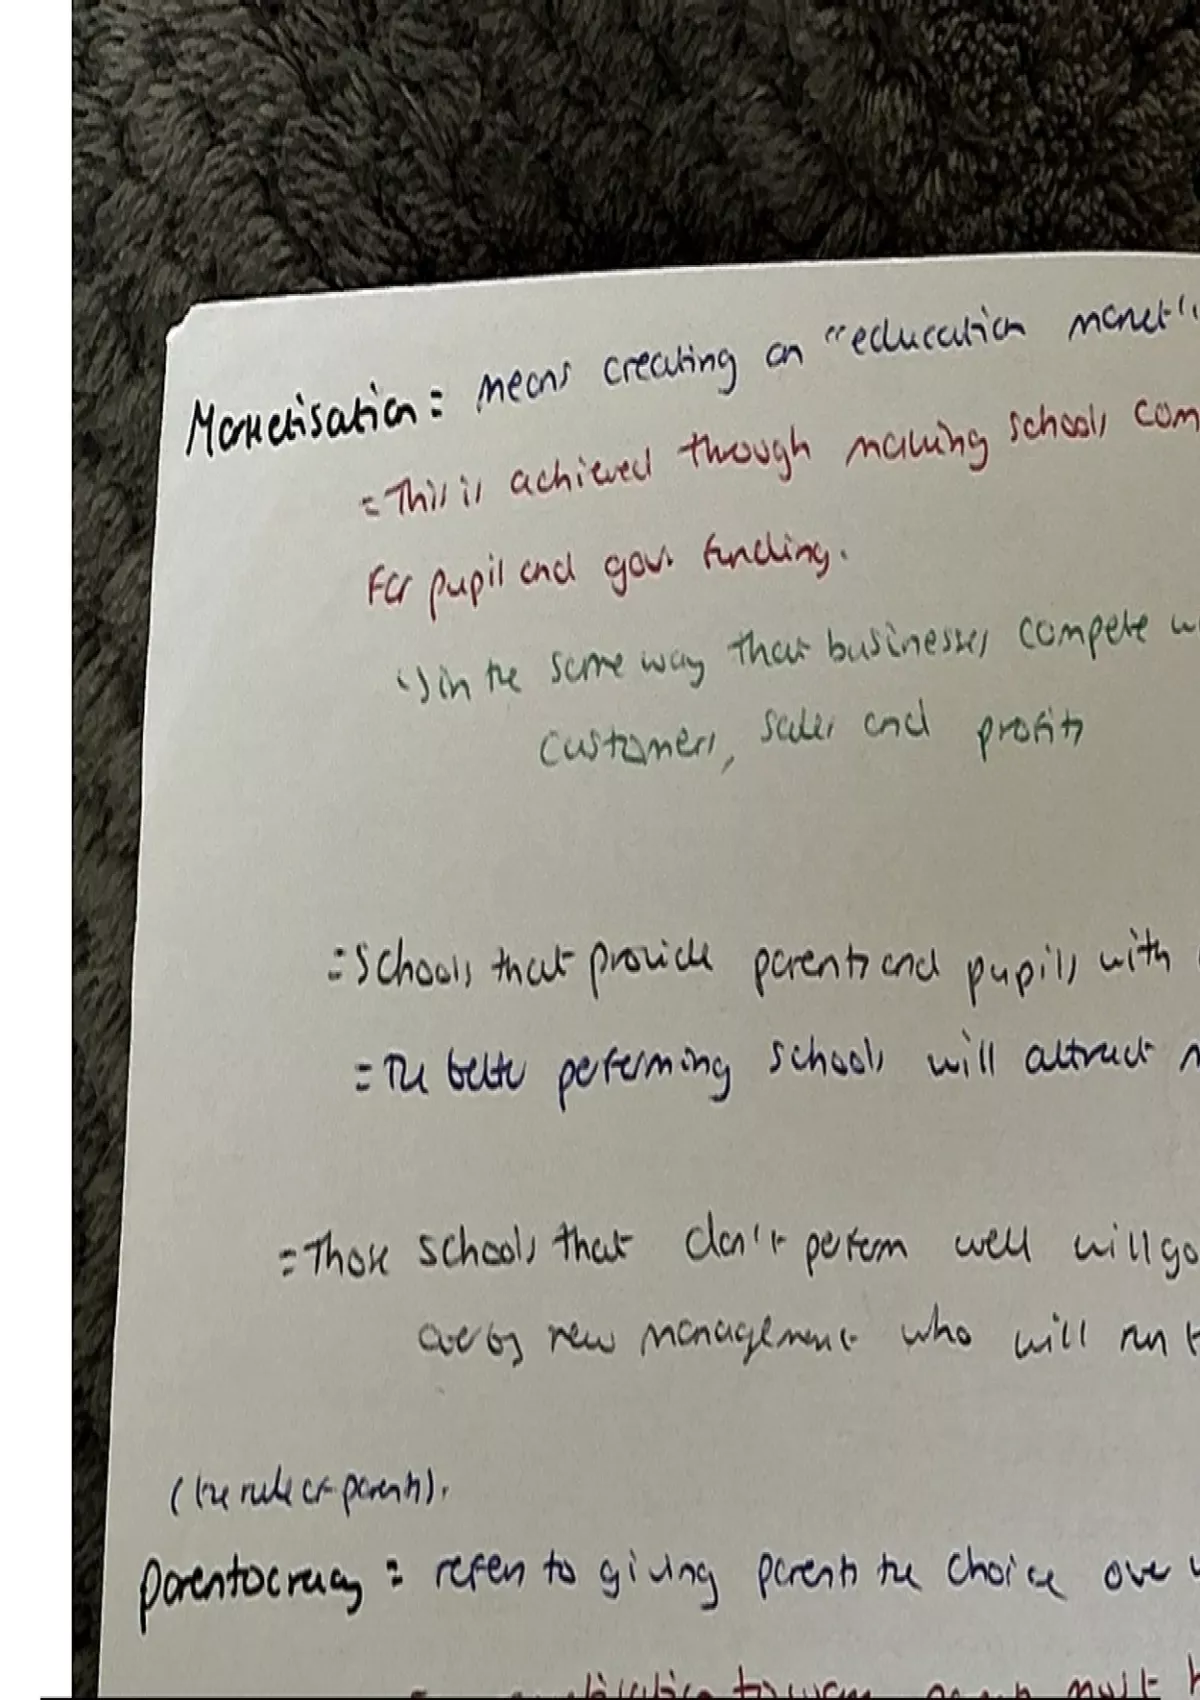 Marketisation = means creating an "education market".
= This is achieved through making schools com
For pupil and gov. funding.
↳ in the same way that businesses compete w
customers, sales and profits
= Schools that provide parents and pupils with
= The better performing schools will attract
= Those schools that don't perform well will go
over by new management who will run t
(the rule of parents).
parentocracy = refers to giving parents the choice over